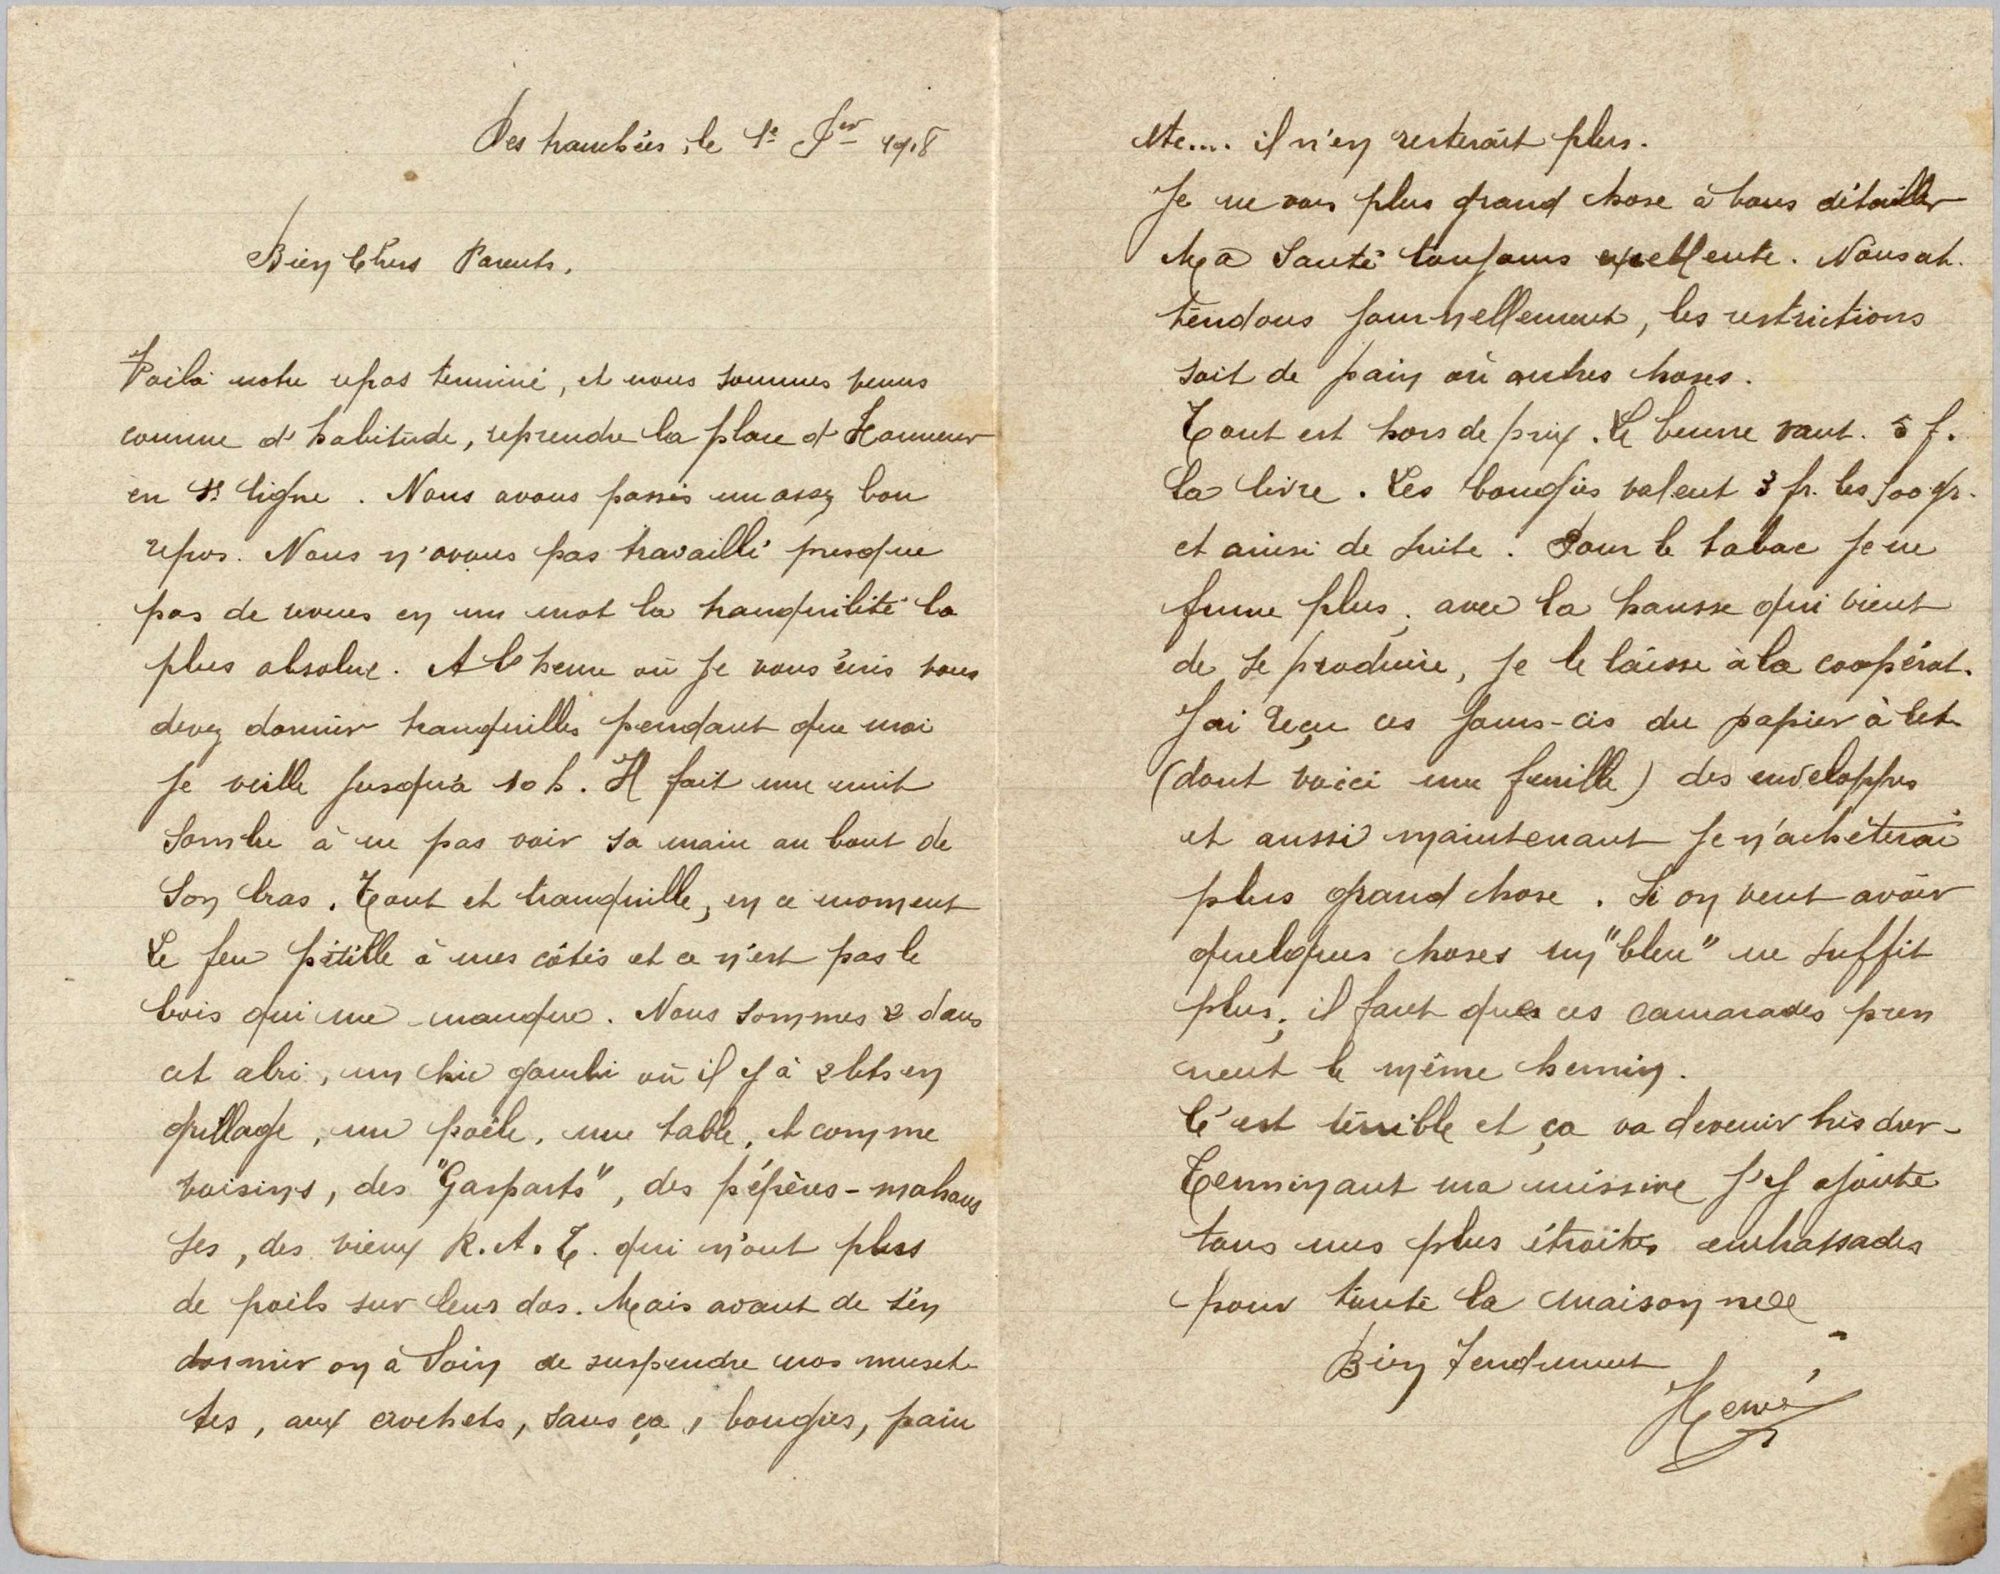 Des tranchées, le 1e Fer 1918
Bien Chers Parents,
Voilà notre repos terminé, et nous sommes venus
comme d'habitude, reprendre la place d'Honneur
en 1e ligne. Nous avons passés un assez bon
repos. Nous n'avons pas travaillé presque
pas de revues en un mot la tranquilité la
plus absolue. A l'heure où je vous écris vous
devez dormir tranquilles pendant que moi
je veille jusqu'à 10 h. Il fait une nuit
sombre à ne pas voir sa main au bout de
son bras. Tout et tranquille, en ce moment
Le feu pétille à mes côtés et ce n'est pas le
bois qui me manque. Nous sommes 2 dans
cet abri, un chic gourbi où il y à 2 lits en
grillage, un poêle, une table, et comme
voisins, des "Gasparts", des pépères-mahous
ses, des vieux R.A.T. qui n'ont plus
de poils sur leur dos. Mais avant de s'en
dormir on à soin de suspendre nos muset-
tes, aux crochets, sans ça, bougies, pain
etc.... il n'en resterait plus.
Je ne vois plus grand chose à vous détailler
Ma santé toujours excellente. Nous at-
tendons journellement, les restrictions
soit de pain où autres choses.
Tout est hors de prix. Le beurre vaut. 5 f.
la livre. Les bougies valent 3 fr. les 500 gr.
et ainsi de suite. Pour le tabac je ne
fume plus; avec la hausse qui vient
de se produire, je le laisse à la coopérat.
J'ai reçu ces jours-cis du papier à let-
(dont voici une feuille) des enveloppes
et aussi maintenant je n'achèterai
plus grand chose. Si on veut avoir
quelques choses un "bleu" ne suffit
plus; il faut ques ces camarades pren
nent le même chemin.
C'est terrible et ça va devenir très dur-
Terminant ma missive j'y ajoute
tous mes plus étroites embrassades
pour toute la maisonnée
Bien tendrement
Hervé